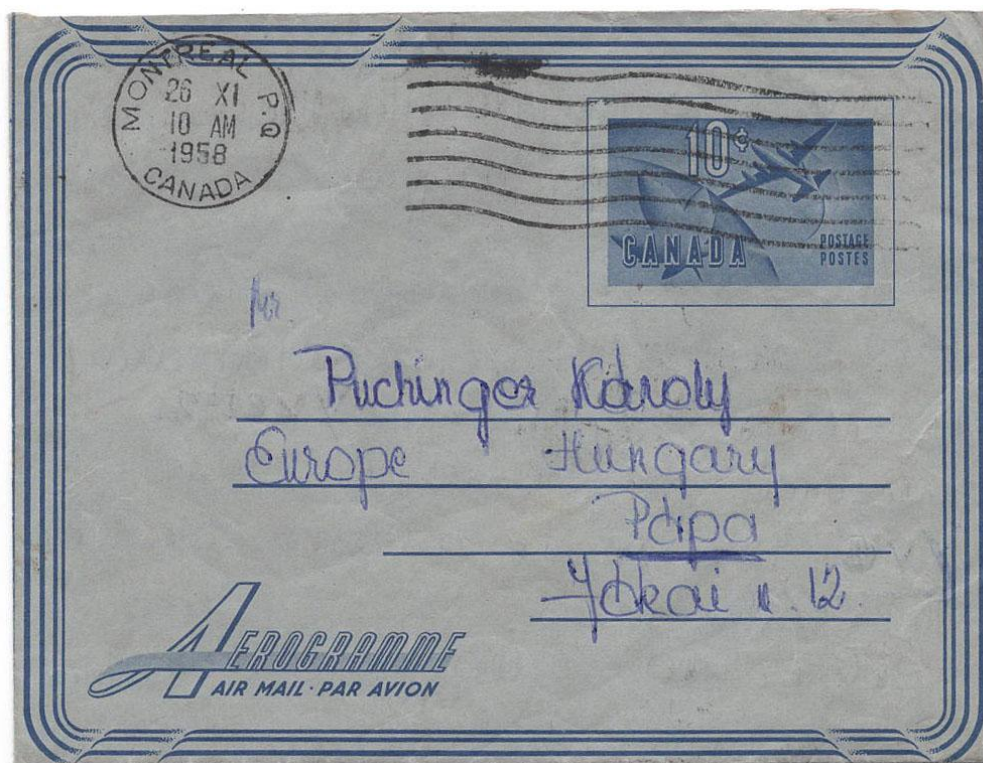 MONTREAL P.Q
26 XI
10 AM
1958
CANADA
10¢
CANADA
POSTAGE
POSTES
Mr.
Puchinger Károly
Europe Hungary
Pápa
Jókai u. 12.
AEROGRAMME
AIR MAIL · PAR AVION